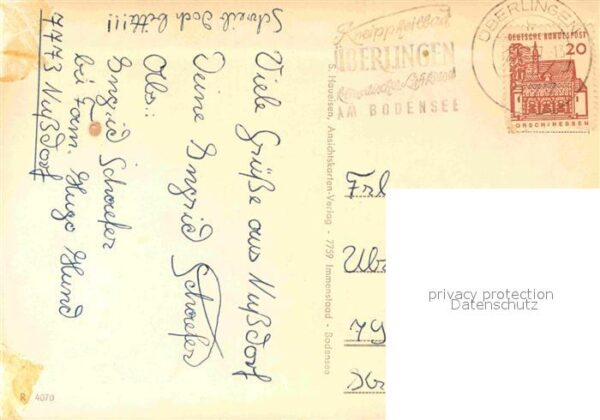 Viele Grüße aus Nußdorf
Deine Ingrid Schaefer
Abs:
Ingrid Schaefer
bei Fam. Hugo Hund
7773 Nußdorf
Schreib doch bitte!!!
S. Haveisen, Ansichtskarten-Verlag - 7759 Immenstaad - Bodensee
R 4070
Kneippheilbad
ÜBERLINGEN
AM BODENSEE
ÜBERLINGEN
DEUTSCHE BUNDESPOST
20
LORSCH/HESSEN
Frl
79
privacy protection
Datenschutz